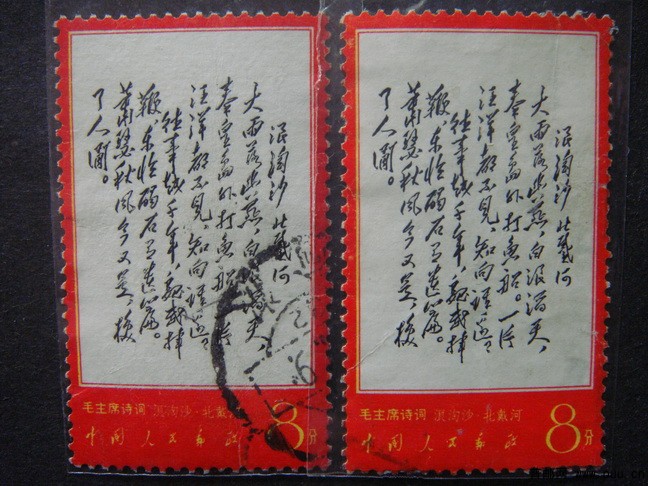 浪淘沙 北戴河
大雨落幽燕,白浪滔天,
秦皇岛外打鱼船。一片
汪洋都不见,知向谁边?
往事越千年,魏武挥
鞭,东临碣石有遗篇。
萧瑟秋风今又是,换
了人间。
毛主席诗词 浪淘沙·北戴河
中国人民邮政
8分
浪淘沙 北戴河
大雨落幽燕,白浪滔天,
秦皇岛外打鱼船。一片
汪洋都不见,知向谁边?
往事越千年,魏武挥
鞭,东临碣石有遗篇。
萧瑟秋风今又是,换
了人间。
毛主席诗词 浪淘沙·北戴河
中国人民邮政
8分